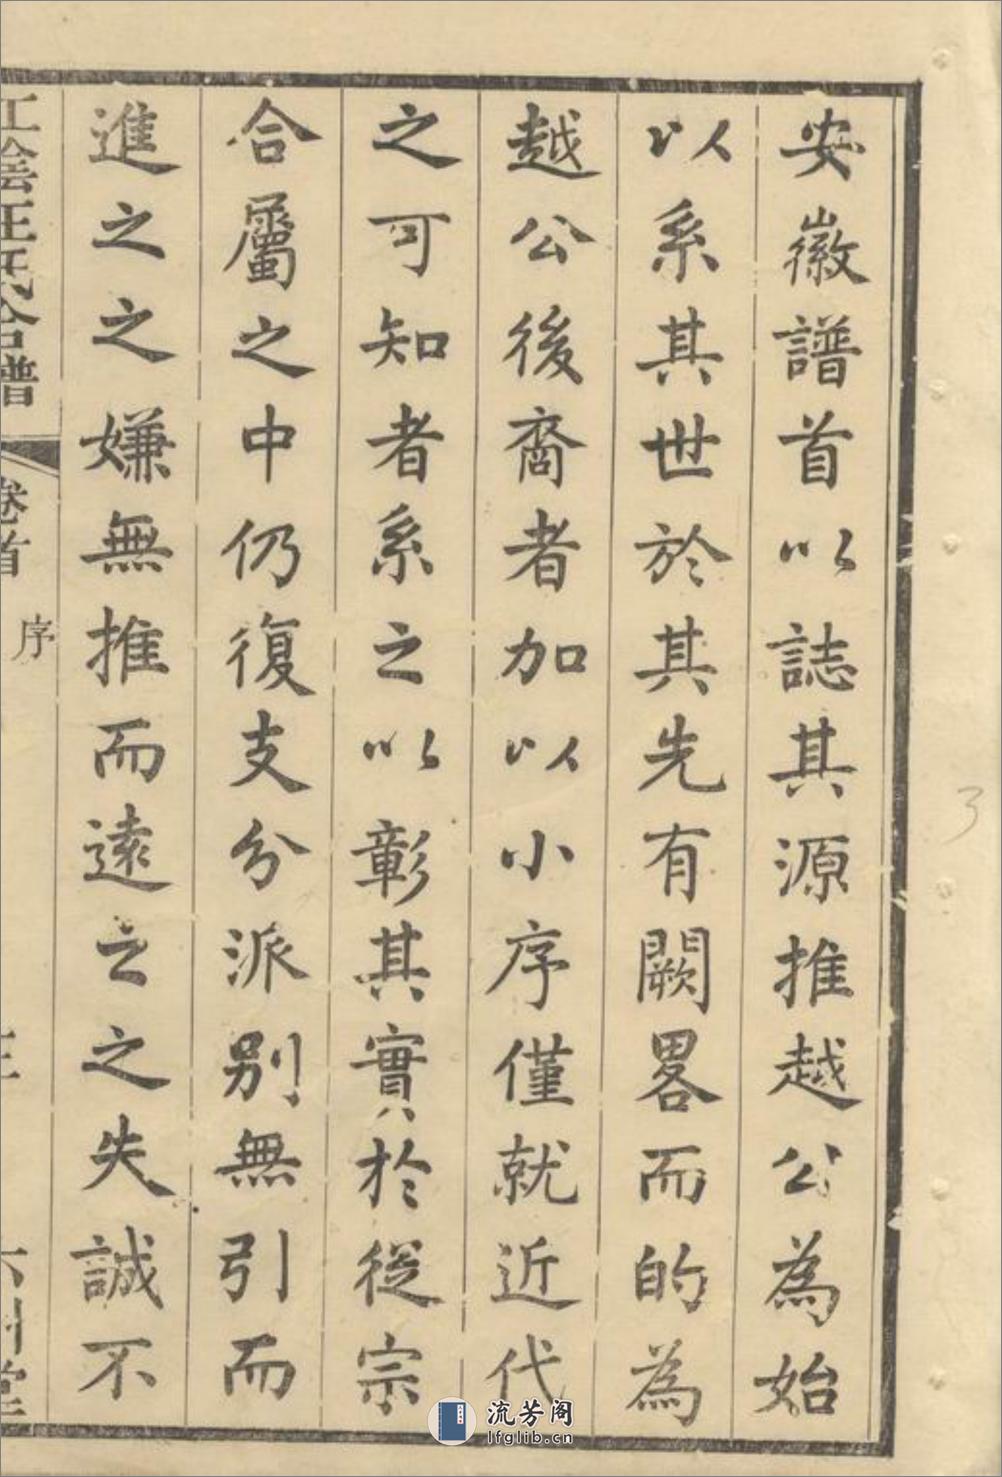 安徽譜首以誌其源推越公為始
以系其世於其先有闕畧而的為
越公後裔者加以小序僅就近代
之可知者系之以彰其實於從宗
合屬之中仍復支分派別無引而
進之之嫌無推而遠之之失誠不
江陰汪氏合譜
卷首
序
3
流芳阁
lfglib.cn